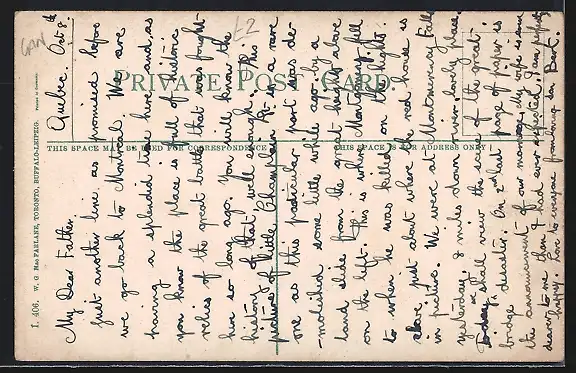 CAN
£2
Quebec. Oct 8th
My Dear Father,
Just another line as promised before
we go back to Montreal. We are
having a splendid time here and as
you know the place is full of historic
relics of the great battle that was fought
here so long ago. You will know the
history of that well enough. This
picture of Little Champlain St. is a rare
one as this particular part was de-
-molished some little while ago by a
land slide from the great heights above
on the left. This is where Montgomery fell
to when he was killed on the heights.
just about where the red house is
in picture. We were at Montmorency Falls
yesterday, 8 miles down river, lovely place.
Today we shall view the scene of the great
bridge disaster. On last page of paper is
the announcement of our marriage. My wife is even
dearer to me than I had ever expected, I am perfectly
happy. Love to everyone from
PRIVATE POST CARD.
THIS SPACE MAY BE USED FOR CORRESPONDENCE
THIS SPACE IS FOR ADDRESS ONLY
I. 406. W. G. MACFARLANE, TORONTO, BUFFALO-LEIPZIG. Printed in Germany